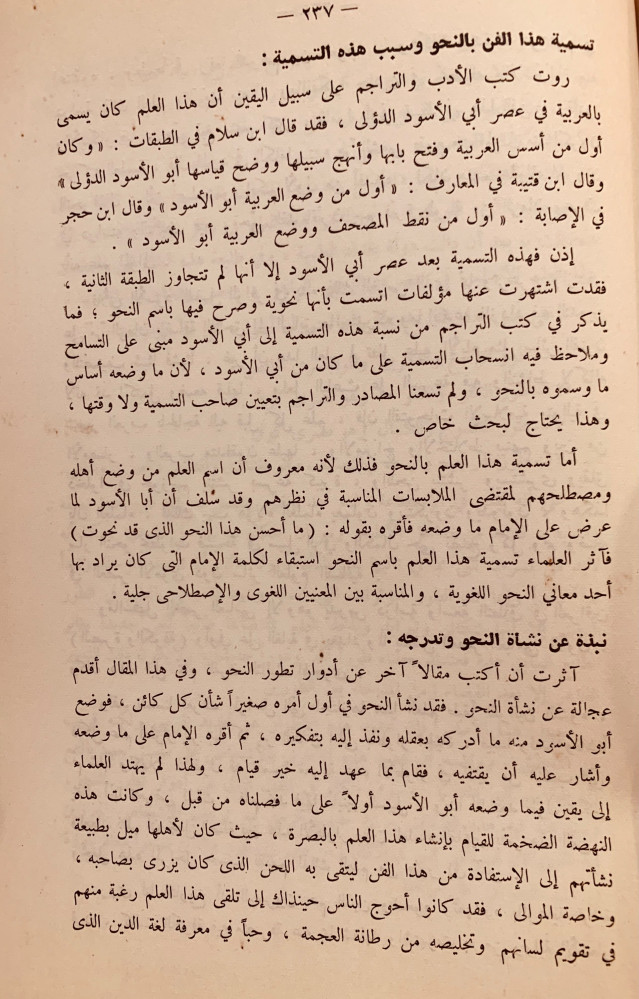 — ٢٣٧ —
تسمية هذا الفن بالنحو وسبب هذه التسمية :
روت كتب الأدب والتراجم على سبيل اليقين أن هذا العلم كان يسمى
بالعربية في عصر أبي الأسود الدؤلى ، فقد قال ابن سلام في الطبقات : « وكان
أول من أسس العربية وفتح بابها وأنهج سبيلها ووضح قياسها أبو الأسود الدؤلى »
وقال ابن قتيبة في المعارف : « أول من وضع العربية أبو الأسود » وقال ابن حجر
في الإصابة : « أول من نقط المصحف ووضع العربية أبو الأسود » .
إذن فهذه التسمية بعد عصر أبي الأسود إلا أنها لم تتجاوز الطبقة الثانية ،
فقدت اشتهرت عنها مؤلفات اتسمت بأنها نحوية وصرح فيها باسم النحو ؛ فما
يذكر في كتب التراجم من نسبة هذه التسمية إلى أبي الأسود مبنى على التسامح
وملاحظ فيه انسحاب التسمية على ما كان من أبي الأسود ، لأن ما وضعه أساس
ما وسموه بالنحو ، ولم تسعنا المصادر والتراجم بتعيين صاحب التسمية ولا وقتها ،
وهذا يحتاج لبحث خاص .
أما تسمية هذا العلم بالنحو فذلك لأنه معروف أن اسم العلم من وضع أهله
ومصطلحهم لمقتضى الملابسات المناسبة في نظرهم وقد سُلف أن أبا الأسود لما
عرض على الإمام ما وضعه فأقره بقوله : ( ما أحسن هذا النحو الذى قد نحوت )
فآثر العلماء تسمية هذا العلم باسم النحو استبقاء لكلمة الإمام التى كان يراد بها
أحد معاني النحو اللغوية ، والمناسبة بين المعنيين اللغوى والإصطلاحى جلية .
نبذة عن نشاة النحو وتدرجه :
آثرت أن أكتب مقالاً آخر عن أدوار تطور النحو ، وفي هذا المقال أقدم
عجالة عن نشأة النحو . فقد نشأ النحو في أول أمره صغيراً شأن كل كائن ، فوضع
أبو الأسود منه ما أدركه بعقله ونفذ إليه بتفكيره ، ثم أقره الإمام على ما وضعه
وأشار عليه أن يقتفيه ، فقام بما عهد إليه خير قيام ، ولهذا لم يهتد العلماء
إلى يقين فيما وضعه أبو الأسود أولاً على ما فصلناه من قبل ، وكانت هذه
النهضة الضخمة للقيام بإنشاء هذا العلم بالبصرة ، حيث كان لأهلها ميل بطبيعة
نشأتهم إلى الإستفادة من هذا الفن ليتقى به اللحن الذى كان يزرى بصاحبه ،
وخاصة الموالى ، فقد كانوا أحوج الناس حينذاك إلى تلقى هذا العلم رغبة منهم
في تقويم لسانهم وتخليصه من رطانة العجمة ، وحباً في معرفة لغة الدين الذى